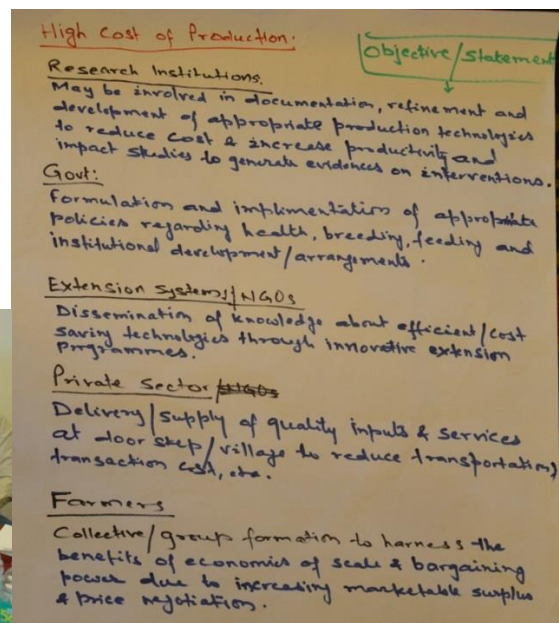 High Cost of Production.
Objective/Statement
Research Institutions.
May be involved in documentation, refinement and
development of appropriate production technologies
to reduce cost & increase productivity and
impact studies to generate evidences on interventions.
Govt:
Formulation and implmentation of appropriate
policies regarding health, breeding, feeding and
institutional development/arrangements.
Extension Systems/NGOs
Dissemination of knowledge about efficient/cost
saving technologies through innovative extension
programmes.
Private Sector/NGOs
Delivery/supply of quality inputs & services
at door step/village to reduce transportation,
transaction cost, etc.
Farmers
Collective/group formation to harness the
benefits of economics of scale & bargaining
power due to increasing marketable surplus
& price negotiation.